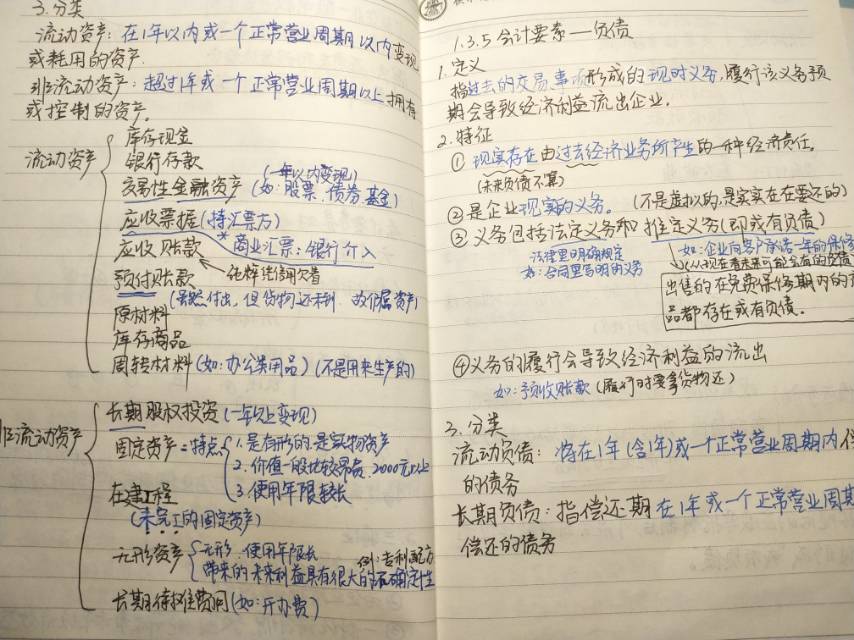 3.分类
流动资产：在1年以内或一个正常营业周期以内变现
或耗用的资产.
非流动资产：超过1年或一个正常营业周期以上拥有
或控制的资产。
流动资产
库存现金
银行存款
(一年以内变现)
交易性金融资产(如：股票、债券、基金)
应收票据(持汇票方)
应收账款 *商业汇票：银行介入
纯粹凭信用欠着
预付账款
(虽然付出，但货物还未到，故仍属资产)
原材料
库存商品
周转材料(如：办公类用品)(不是用来生产的)
非流动资产
长期股权投资(一年以上变现)
固定资产=特点 1.是有形的.是实物资产
2.价值一般比较昂贵，2000元以上
3.使用年限较长
在建工程
(未完工的固定资产)
无形资产 无形、使用年限长 例：专利配方
带来的未来利益具有很大的不确定性
长期待摊费用(如：开办费)
1.3.5会计要素—负债
1.定义
指过去的交易事项形成的现时义务,履行该义务预
期会导致经济利益流出企业.
2.特征
①现实存在由过去经济业务所产生的一种经济责任.
(未来负债不算)
②是企业现实的义务。(不是虚拟的,是实实在在要还的)
③义务包括法定义务和推定义务(即或有负债)
法律里明确规定
如：合同里写明的义务
如：企业向客户承诺一年的保修
(从现在看未来可能会有的负债
出售的在免费保修期内的产
品都存在或有负债.
④义务的履行会导致经济利益的流出
如：预收账款(履行时要拿货物还)
3.分类
流动负债：将在1年(含1年)或一个正常营业周期内偿
的债务
长期负债：指偿还期在1年或一个正常营业周期
偿还的债务